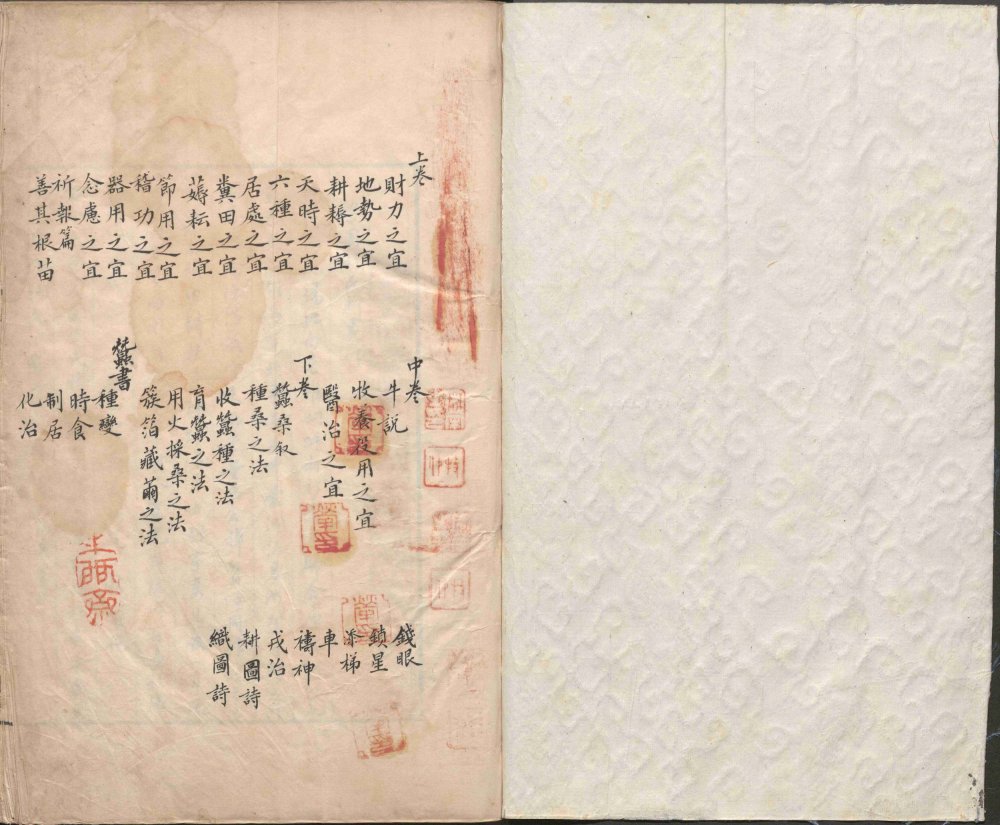 上卷
財力之宜
地勢之宜
耕耨之宜
天時之宜
六種之宜
居處之宜
糞田之宜
薅耘之宜
節用之宜
稽功之宜
器用之宜
念慮之宜
祈報篇
善其根苗
中卷
牛説
牧養役用之宜
醫治之宜
下卷
蠶桑叙
種桑之法
收蠶種之法
育蠶之法
用火採桑之法
簇箔藏繭之法
蠶書
種變
時食
制居
化治
錢眼
鎖星
添梯
車
禱神
戎治
耕圖詩
織圖詩